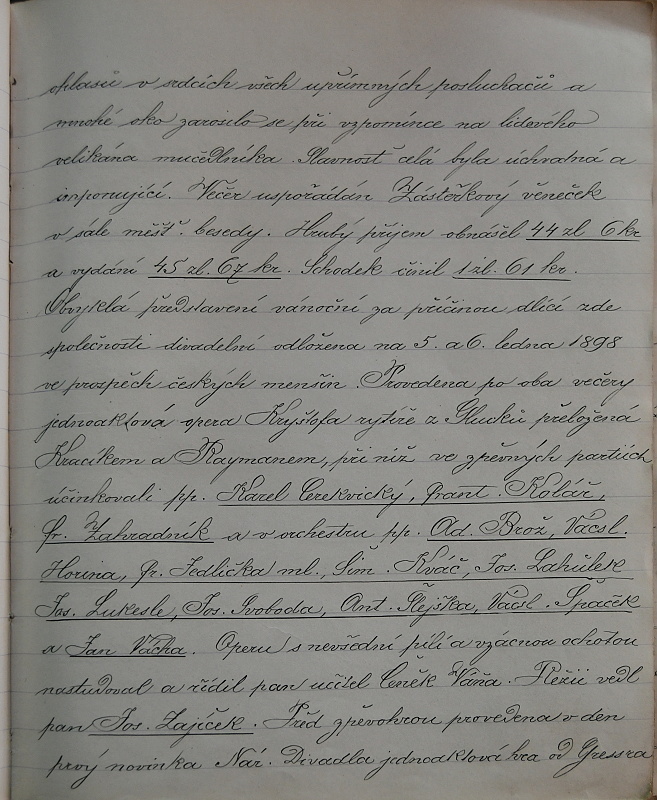 ohlasů v srdcích všech upřímných posluchačů a
mnohé oko zarosilo se při vzpomínce na lidového
velikána mučedlníka. Slavnosť celá byla úchvatná a
imponující. Večer uspořádán Zástěrkový věneček
v sále měšť. besedy. Hrubý příjem obnášel 44 zl 6 kr
a vydání 45 zl. 67 kr. Schodek činil 1 zl. 61 kr.
Obvyklá představení vánoční za příčinou dlící zde
společnosti divadelní odložena na 5. a 6. ledna 1898
ve prospěch českých menšin. Provedena po oba večery
jednoaktová opera Kryštofa rytíře z Glucků přeložená
Kracíkem a Raymanem, při níž ve zpěvných partiích
účinkovali pp. Karel Cerekvický, Frant. Kolář,
Fr. Zahradník a v orchestru pp. Ad. Brož, Václ.
Horina, Fr. Jedlička ml., Šim. Kváč, Jos. Lahůlek
Jos. Lukesle, Jos. Svoboda, Ant. Šlejška, Václ. Špaček
a Jan Vácha. Operu s nevšední pílí a vzácnou ochotou
nastudoval a řídil pan učitel Čeněk Váňa. Režii vedl
pan Jos. Zajíček. Před zpěvohrou provedena v den
prvý novinka Nár. Divadla jednoaktová hra od